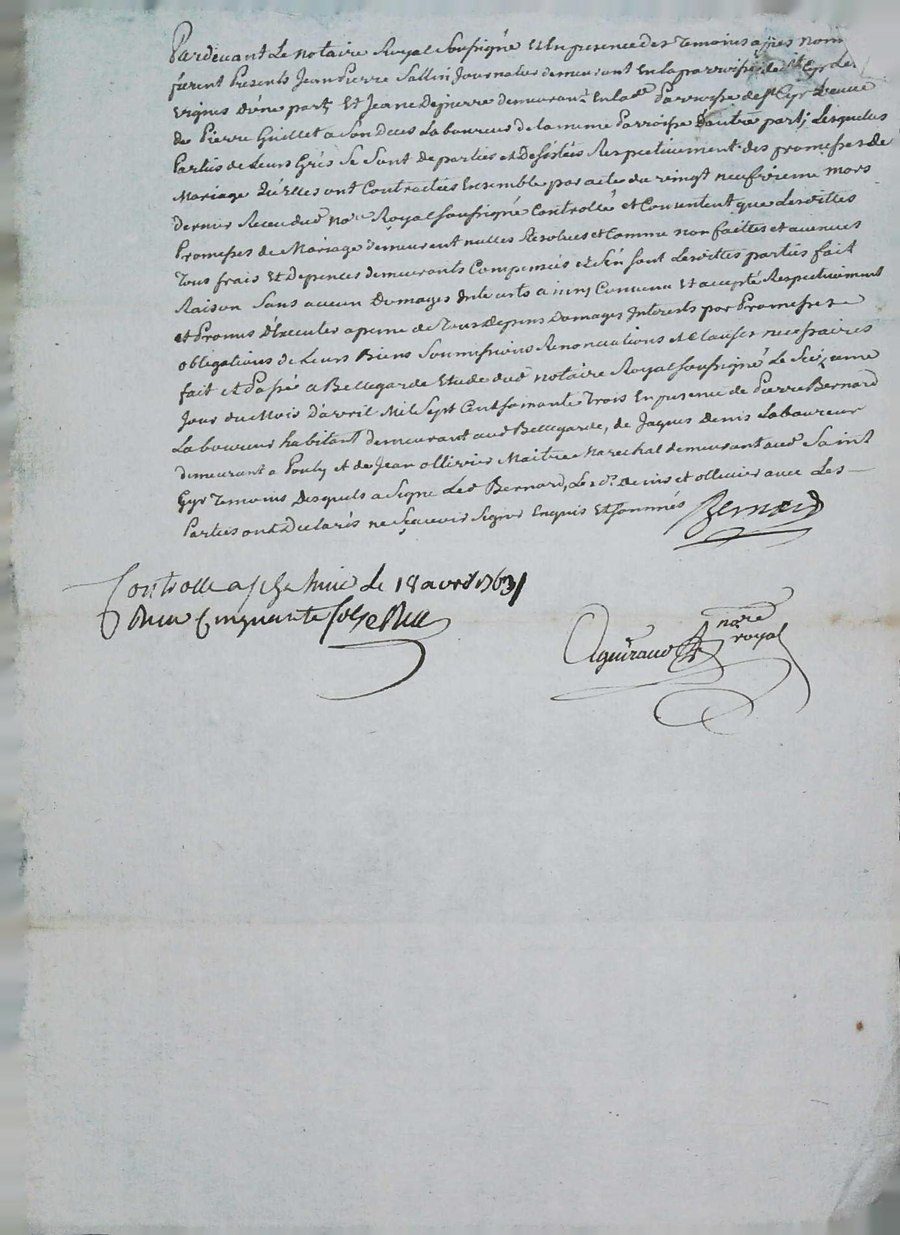 Pardevant Le notaire Royal Soussigné Et En presence des Temoins apres nom
furent Presents Jean Pierre Journalier demeurant En la parroisse de St Cyr Les
Vignes d'une part, Et Jeane Depierre demeurant En lad. Parroisse de St Cyr Veuve
de Pierre Guillet a Son deces Laboureur de la meme Parroisse d'autre part; Lesquelles
Parties de Leurs Grés Se Sont departies et Desistées Respectivement des promesses de
Mariage qu'elles ont Contractées Ensemble par acte du vingt neufvieme mars
dernier Receu dud. nore. Royal soussigné Controllé et Consentent que Lesdittes
Promesses de Mariage demeurent nulles Resolues et Comme non faittes et avenues
Tous frais Et Depences demeurants Compensés et S'en sont Lesdittes parties fait
Raison Sans aucun Domages Interests ainsy Convenu Et accepté Respectivement
et Promis D'executer a peine de Tous depens Domages Interests par Promesse
obligations de Leurs Biens Soumissions Renonciations et Clauses necessaires
fait et Passé a Bellegarde Etude dud. notaire Royal soussigné Le Seizieme
Jour du Mois D'avril Mil Sept Cent soixante Trois En presence de Pierre Bernard
Laboureur habitant demeurant aud. Bellegarde, de Jaques Denis Laboureur
demeurant a et de Jean ollivier Maitre Marechal demeurant aud. Saint
Cyr Temoins Desquels a Signé Led. Bernard, Led. Denis et ollivier avec Les
Parties ont Declarés ne Sçavoir Signer Enquis Et Sommés Bernard
Controlle a le 18 avril 1763
Reçu Cinquante sols
nore
royal